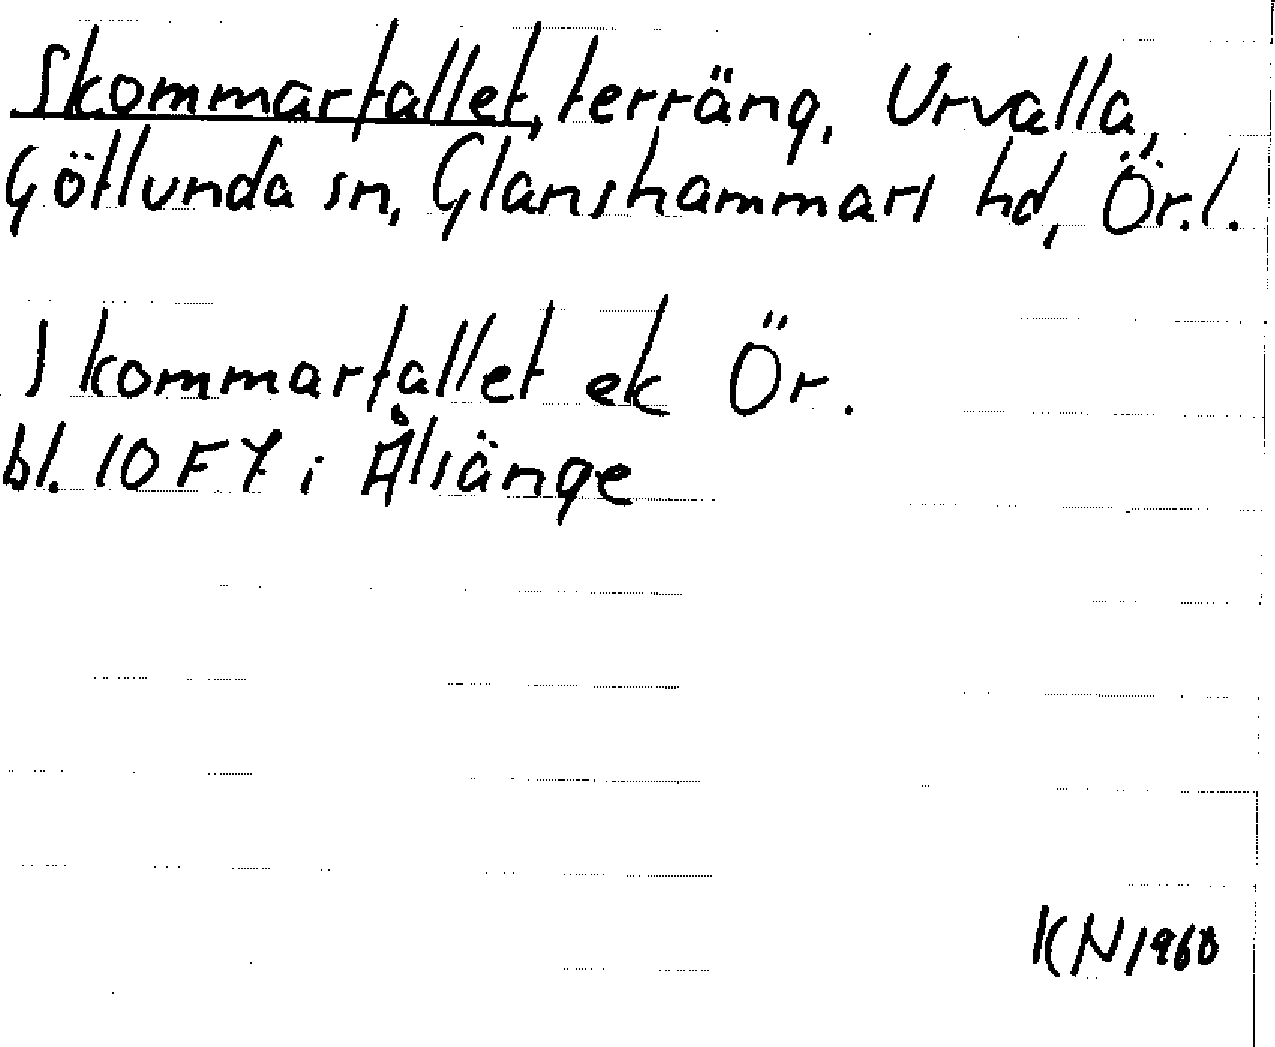 Skommarfallet, terräng, Urvalla,
Götlunda sn, Glanshammars hd, Ör.l.
Skommarfallet ek Ör.
bl. 10 F 7 i Ålsänge
KN 1960